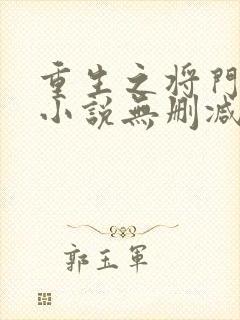 重生之将門
小説無删减
郭玉軍